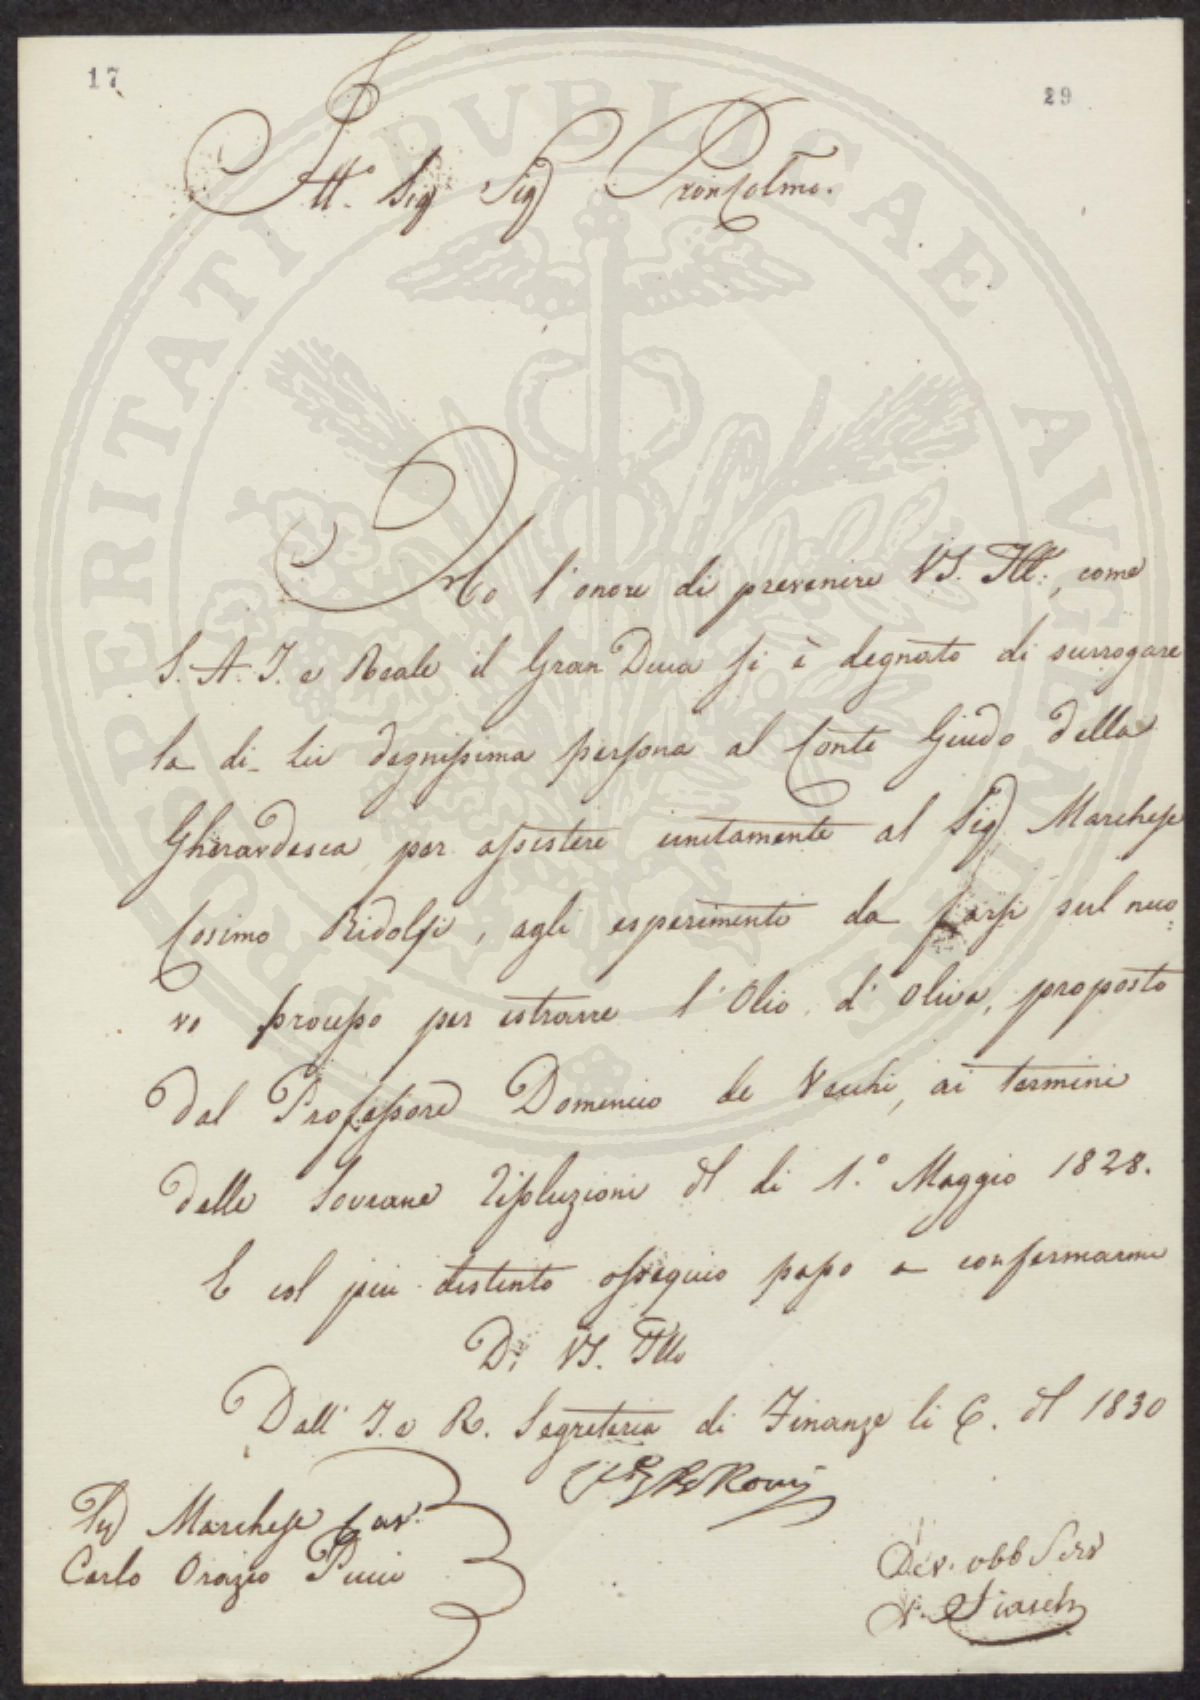 17
29
Ill.º Sig Sig Pron Colmo.
Ho l'onore di prevenire VS. Ill:, come
S. A. I. e Reale il Gran Duca si è degnato di surrogare
la di Lei degnissima persona al Conte Guido della
Gherardesca per assistere unitamente al Sig Marchese
Cosimo Ridolfi, agli esperimenti da farsi sul nuo:
vo processo per estrarre l'Olio d'Oliva, proposto
dal Professore Domenico de Vecchi, ai termini
delle Sovrane Risoluzioni del dì 1.º Maggio 1828.
E col più distinto ossequio passo a confermarmi
Di VS. Illo
Dall' I. e R. Segreteria di Finanze li 1830
Sig Marchese Cav.
Carlo Orazio Pucci
Dev. obb Serv
PROSPERITATI PVBLICAE AVGENDAE